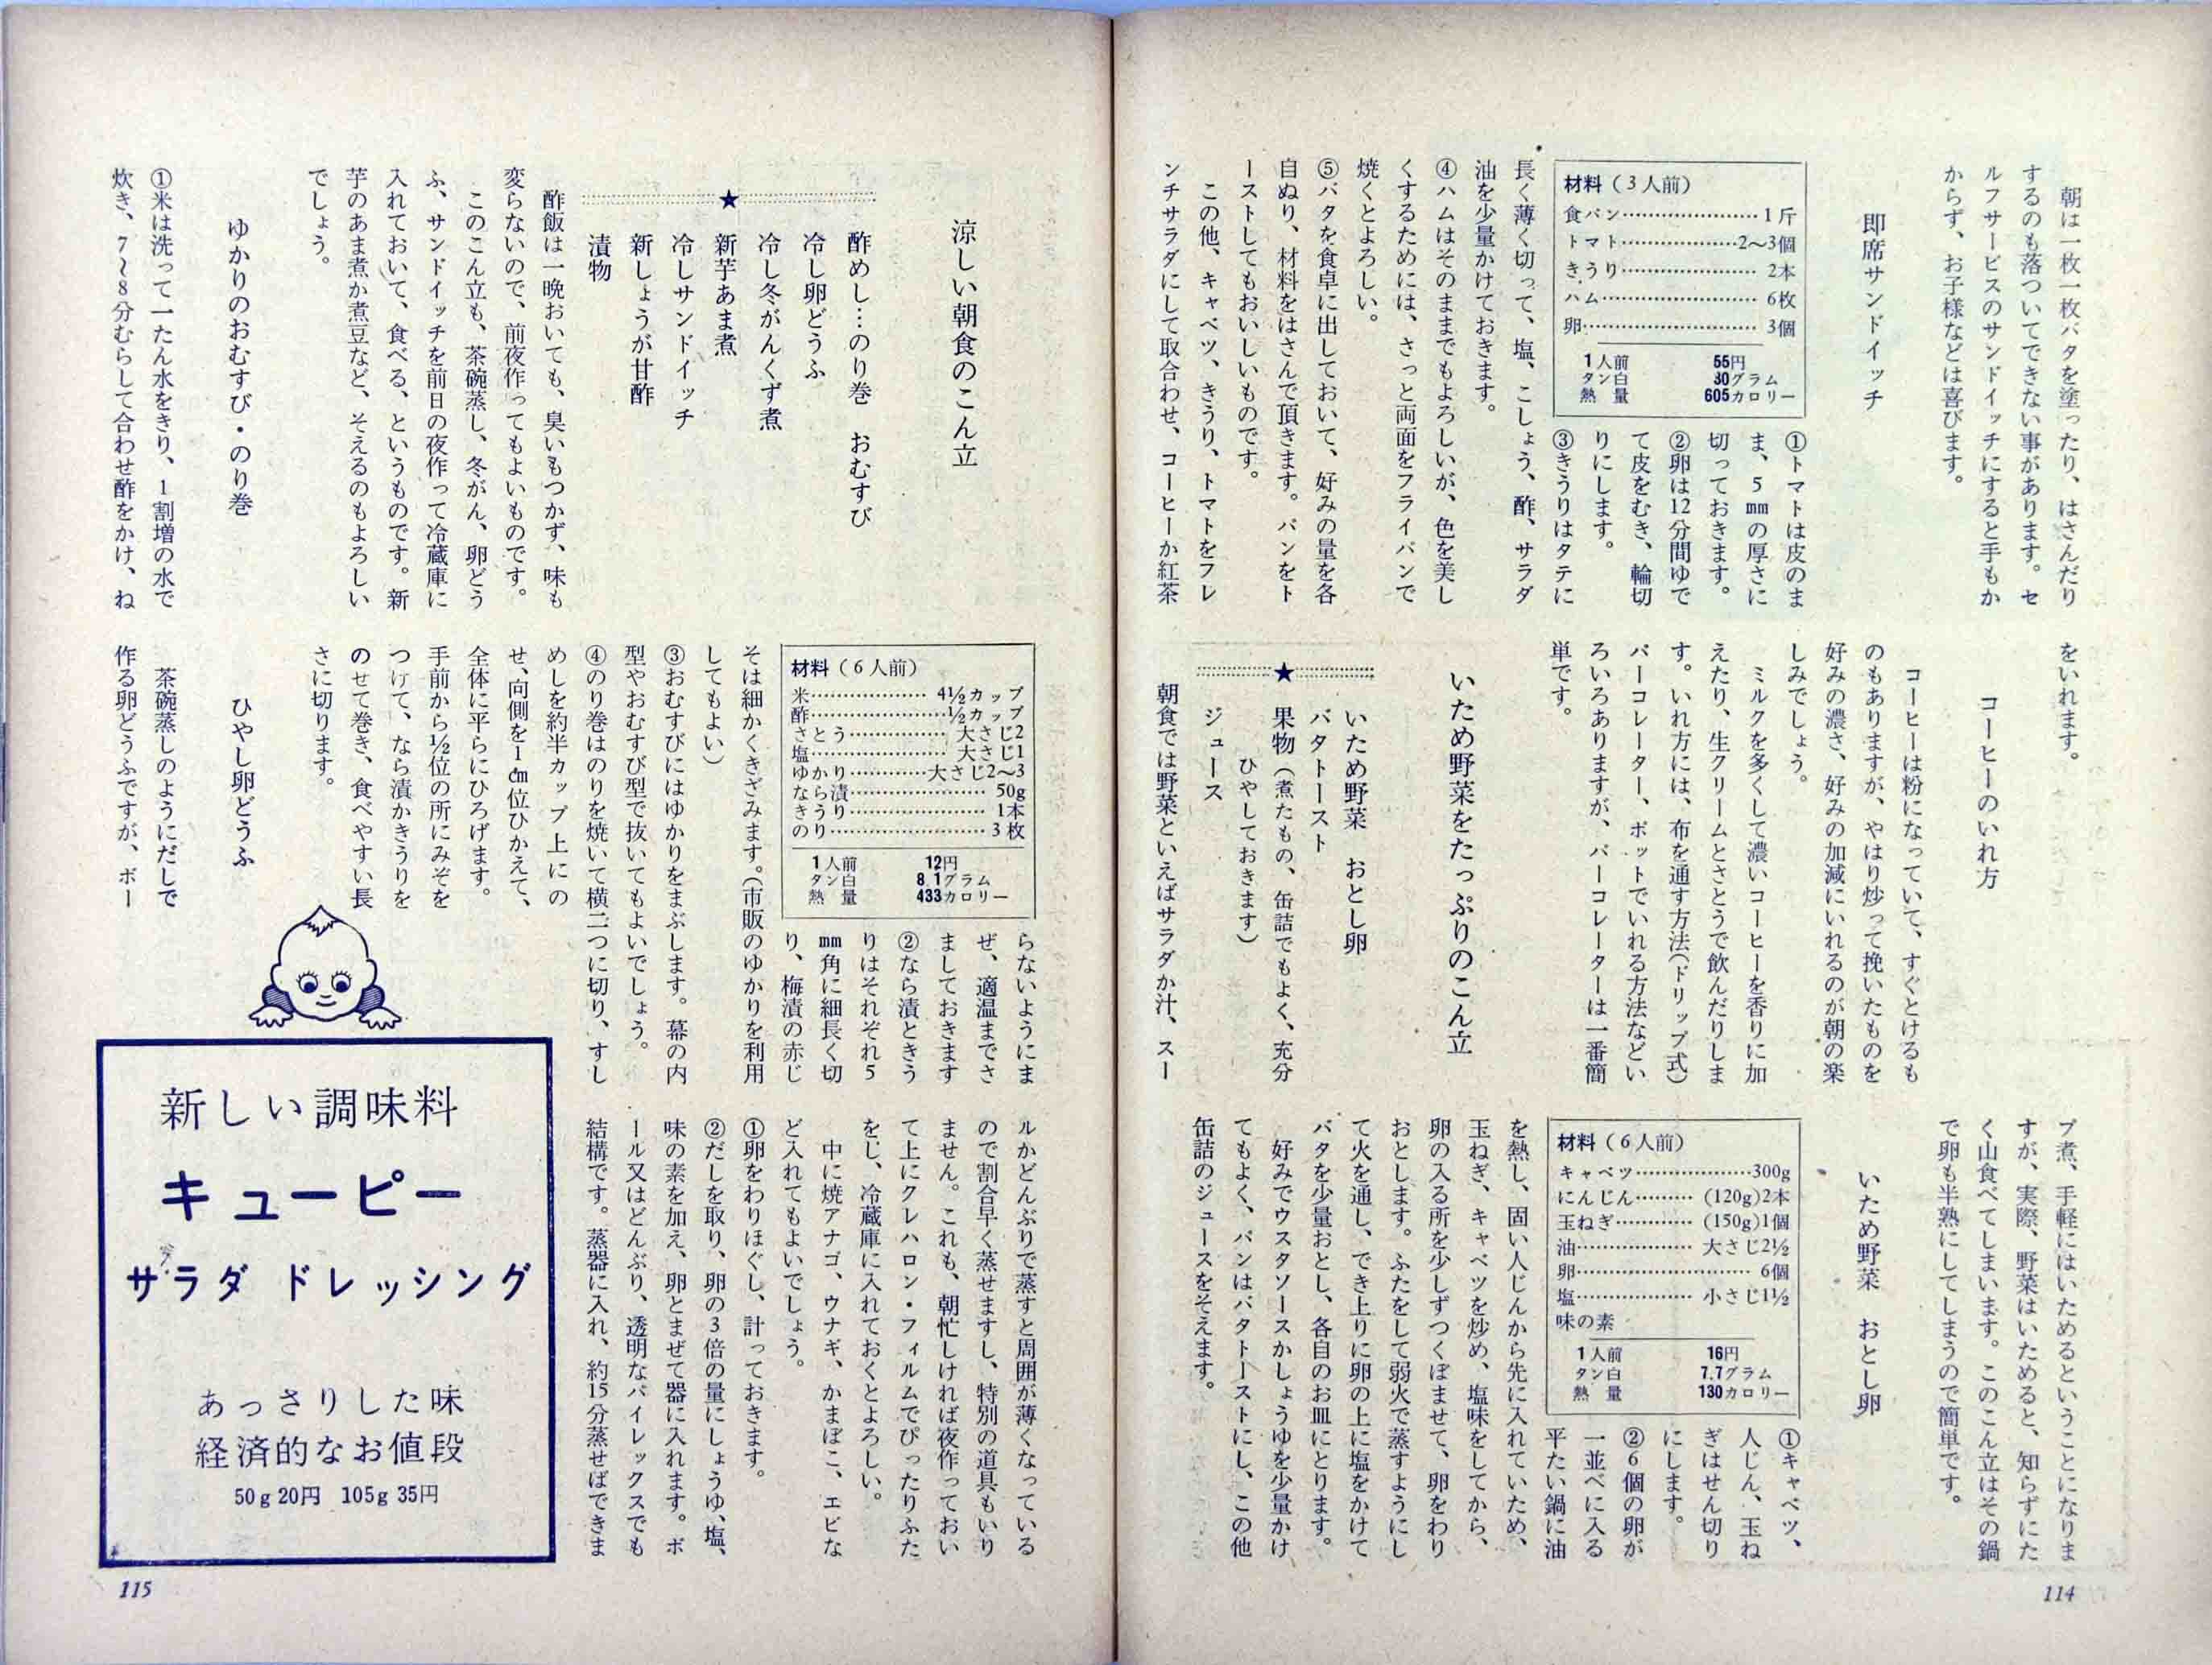 朝は一枚一枚バタを塗ったり、はさんだり
するのも落ついてできない事があります。セ
ルフサービスのサンドイッチにすると手もか
からず、お子様などは喜びます。
即席サンドイッチ
材料（３人前）
食パン…………………1斤
トマト………………2〜3個
きうり………………… 2本
ハム…………………… 6枚
卵……………………… 3個
1人前 55円
タン白 30グラム
熱量 605カロリー
①トマトは皮のま
ま、5㎜の厚さに
切っておきます。
②卵は12分間ゆで
て皮をむき、輪切
りにします。
③きうりはタテに
長く薄く切って、塩、こしょう、酢、サラダ
油を少量かけておきます。
④ハムはそのままでもよろしいが、色を美し
くするためには、さっと両面をフライパンで
焼くとよろしい。
⑤バタを食卓に出しておいて、好みの量を各
自ぬり、材料をはさんで頂きます。パンをト
ーストしてもおいしいものです。
この他、キャベツ、きうり、トマトをフレ
ンチサラダにして取合わせ、コーヒーか紅茶
をいれます。
コーヒーのいれ方
コーヒーは粉になっていて、すぐとけるも
のもありますが、やはり炒って挽いたものを
好みの濃さ、好みの加減にいれるのが朝の楽
しみでしょう。
ミルクを多くして濃いコーヒーを香りに加
えたり、生クリームとさとうで飲んだりしま
す。いれ方には、布を通す方法（ドリップ式）
パーコレーター、ポットでいれる方法などい
ろいろありますが、パーコレーターは一番簡
単です。
いため野菜をたっぷりのこん立
いため野菜　おとし卵
バタトースト
★
果物（煮たもの、缶詰でもよく、充分
ひやしておきます）
ジュース
朝食では野菜といえばサラダか汁、スー
プ煮、手軽にはいためるということになりま
すが、実際、野菜はいためると、知らずにた
く山食べてしまいます。このこん立はその鍋
で卵も半熟にしてしまうので簡単です。
いため野菜　おとし卵
材料（６人前）
キャベツ………………300g
にんじん………(120g)2本
玉ねぎ…………(150g)1個
油………………大さじ2½
卵……………………… 6個
塩………………小さじ1½
味の素
1人前 16円
タン白 7.7グラム
熱量 130カロリー
①キャベツ、
人じん、玉ね
ぎはせん切り
にします。
②6個の卵が
一並べに入る
平たい鍋に油
を熱し、固い人じんから先に入れていため、
玉ねぎ、キャベツを炒め、塩味をしてから、
卵の入る所を少しずつくぼませて、卵をわり
おとします。ふたをして弱火で蒸すようにし
て火を通し、でき上りに卵の上に塩をかけて
バタを少量おとし、各自のお皿にとります。
好みでウスタソースかしょうゆを少量かけ
てもよく、パンはバタトーストにし、この他
缶詰のジュースをそえます。
114
涼しい朝食のこん立
酢めし…のり巻　おむすび
冷し卵どうふ
冷し冬がんくず煮
★
新芋あま煮
冷しサンドイッチ
新しょうが甘酢
漬物
酢飯は一晩おいても、臭いもつかず、味も
変らないので、前夜作ってもよいものです。
このこん立も、茶碗蒸し、冬がん、卵どう
ふ、サンドイッチを前日の夜作って冷蔵庫に
入れておいて、食べる、というものです。新
芋のあま煮か煮豆など、そえるのもよろしい
でしょう。
ゆかりのおむすび・のり巻
①米は洗って一たん水をきり、1割増の水で
炊き、7〜8分むらして合わせ酢をかけ、ね
材料（６人前）
米………………4½カップ
酢…………………½カップ
さとう……………大さじ2
塩…………………大さじ1
ゆかり…………大さじ2〜3
なら漬………………… 50g
きうり………………… 1本
のり……………………３枚
1人前 12円
タン白 8.1グラム
熱量 433カロリー
らないようにま
ぜ、適温までさ
ましておきます
②なら漬ときう
りはそれぞれ5
㎜角に細長く切
り、梅漬の赤じ
そは細かくきざみます。（市販のゆかりを利用
してもよい）
③おむすびにはゆかりをまぶします。幕の内
型やおむすび型で抜いてもよいでしょう。
④のり巻はのりを焼いて横二つに切り、すし
めしを約半カップ上にの
せ、向側を1㎝位ひかえて、
全体に平らにひろげます。
手前から½位の所にみぞを
つけて、なら漬かきうりを
のせて巻き、食べやすい長
さに切ります。
ひやし卵どうふ
茶碗蒸しのようにだしで
作る卵どうふですが、ボー
ルかどんぶりで蒸すと周囲が薄くなっている
ので割合早く蒸せますし、特別の道具もいり
ません。これも、朝忙しければ夜作っておい
て上にクレハロン・フィルムでぴったりふた
をし、冷蔵庫に入れておくとよろしい。
中に焼アナゴ、ウナギ、かまぼこ、エビな
ど入れてもよいでしょう。
①卵をわりほぐし、計っておきます。
②だしを取り、卵の3倍の量にしょうゆ、塩、
味の素を加え、卵とまぜて器に入れます。ボ
ール又はどんぶり、透明なパイレックスでも
結構です。蒸器に入れ、約15分蒸せばできま
新しい調味料
キューピー
サラダ ドレッシング
あっさりした味
経済的なお値段
50g 20円　105g 35円
115